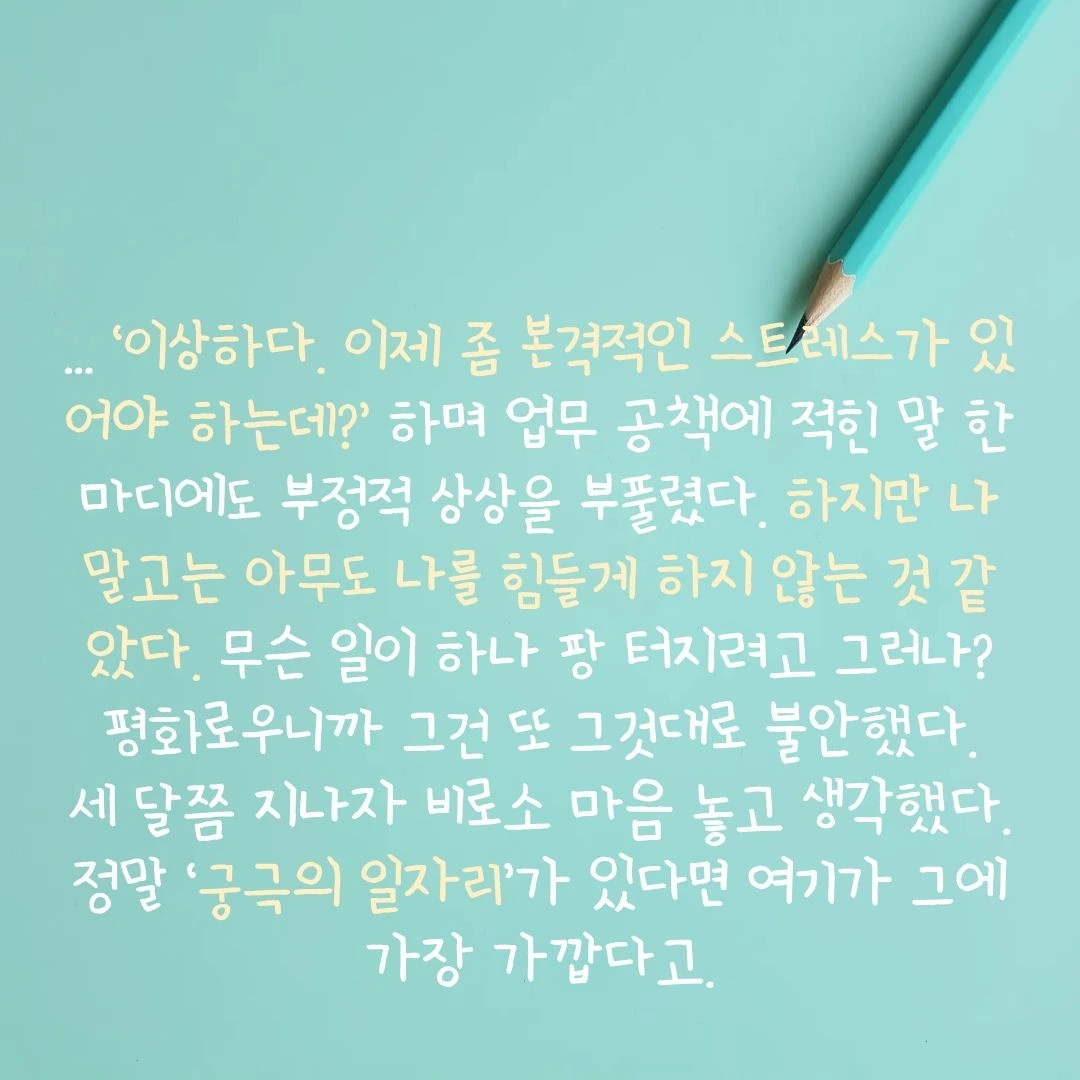 ... ‘이상하다. 이제 좀 본격적인 스트레스가 있
어야 하는데?’ 하며 업무 공책에 적힌 말 한
마디에도 부정적 상상을 부풀렸다. 하지만 나
말고는 아무도 나를 힘들게 하지 않는 것 같
았다. 무슨 일이 하나 팡 터지려고 그러나?
평화로우니까 그건 또 그것대로 불안했다.
세 달쯤 지나자 비로소 마음 놓고 생각했다.
정말 ‘궁극의 일자리’가 있다면 여기가 그에
가장 가깝다고.